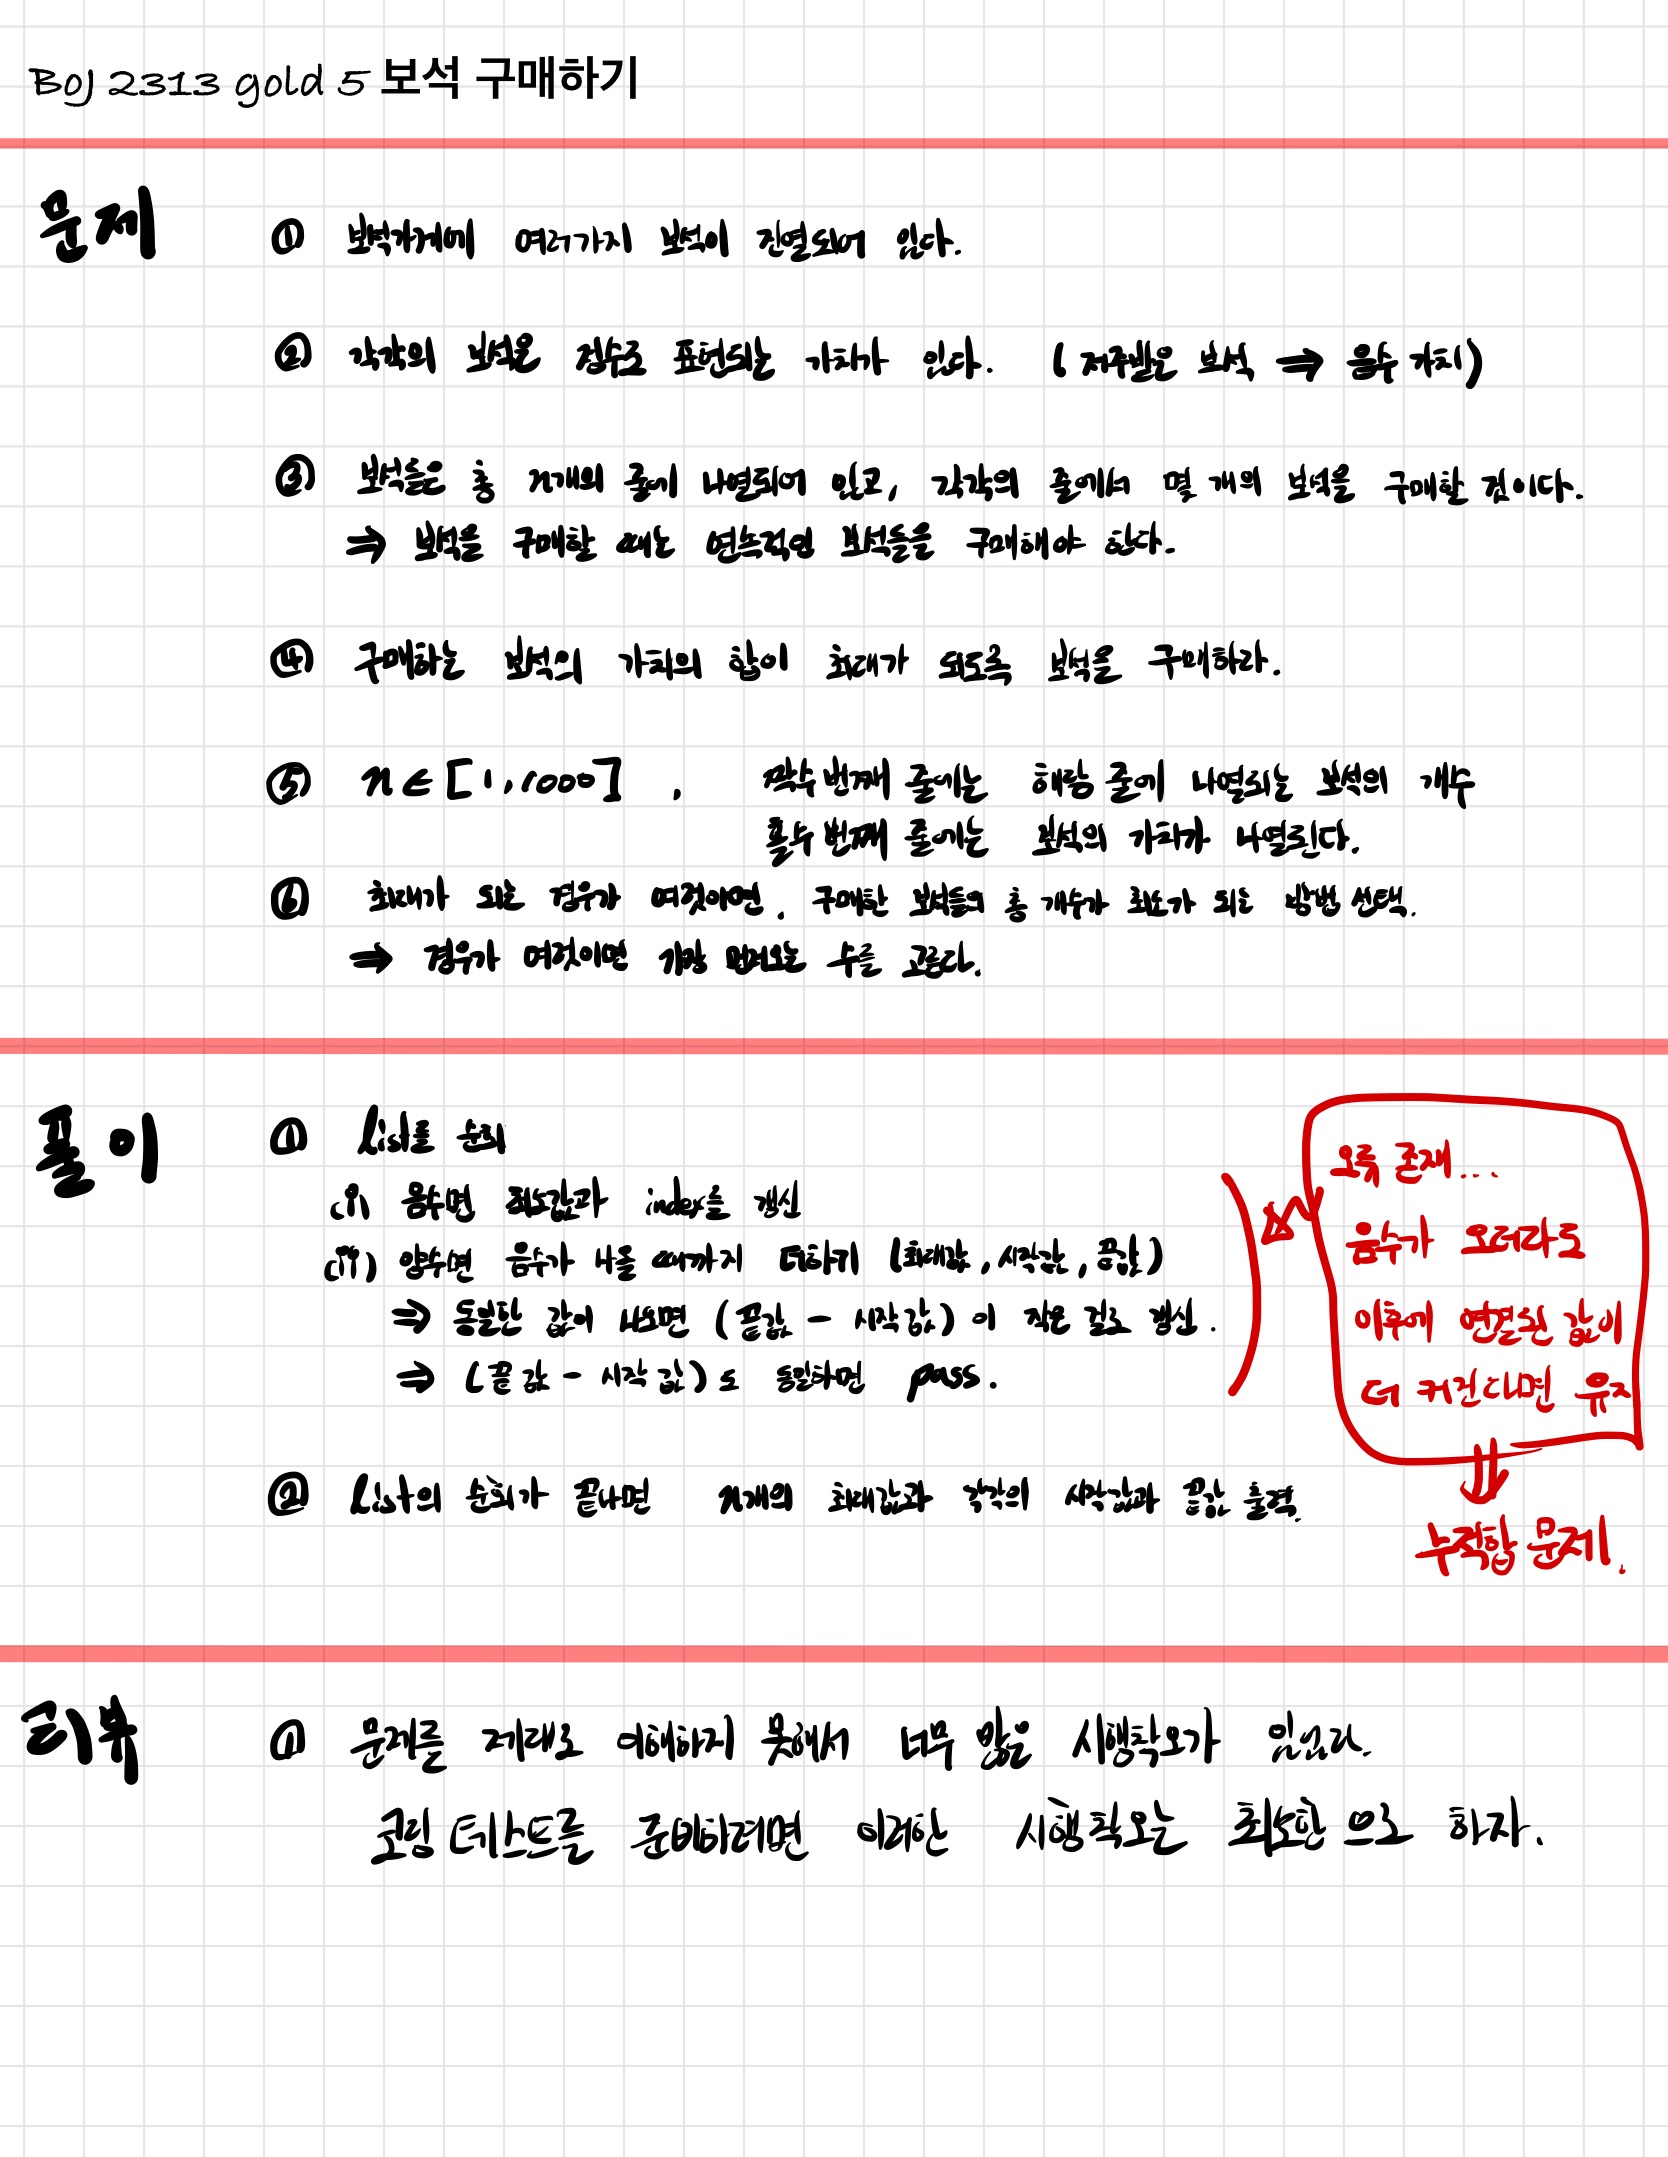 BOJ 2313 gold 5 보석 구매하기
문제
① 보석가게에 여러가지 보석이 진열되어 있다.
② 각각의 보석은 점수로 표현되는 가치가 있다. (저주받은 보석 ⇒ 음수 가치)
③ 보석들은 총 n개의 줄에 나열되어 있고, 각각의 줄에서 몇 개의 보석을 구매할 것이다.
⇒ 보석을 구매할 때는 연속적인 보석들을 구매해야 한다.
④ 구매하는 보석의 가치의 합이 최대가 되도록 보석을 구매하라.
⑤ n ∈ [1, 1000] , 짝수 번째 줄에는 해당 줄에 나열되는 보석의 개수
홀수 번째 줄에는 보석의 가치가 나열된다.
⑥ 최대가 되는 경우가 여럿이면, 구매한 보석들의 총 개수가 최소가 되는 방법 선택.
⇒ 경우가 여럿이면 가장 먼저오는 수를 고른다.
풀이
① list를 순회
(i) 음수면 최소값과 index를 갱신
(ii) 양수면 음수가 나올 때까지 더하기 (최대값, 시작값, 끝값)
⇒ 동일한 값이 나오면 (끝값 - 시작값)이 작은 걸로 갱신.
⇒ (끝값 - 시작값)도 동일하면 pass.
② list의 순회가 끝나면 n개의 최대값과 각각의 시작값과 끝값 출력.
오류 존재...
음수가 오더라도
이후에 연결된 값이
더 커진다면 유지
⇓
누적합 문제.
리뷰
① 문제를 제대로 이해하지 못해서 너무 많은 시행착오가 있었다.
코딩 테스트를 준비하려면 이러한 시행착오는 최소한으로 하자.